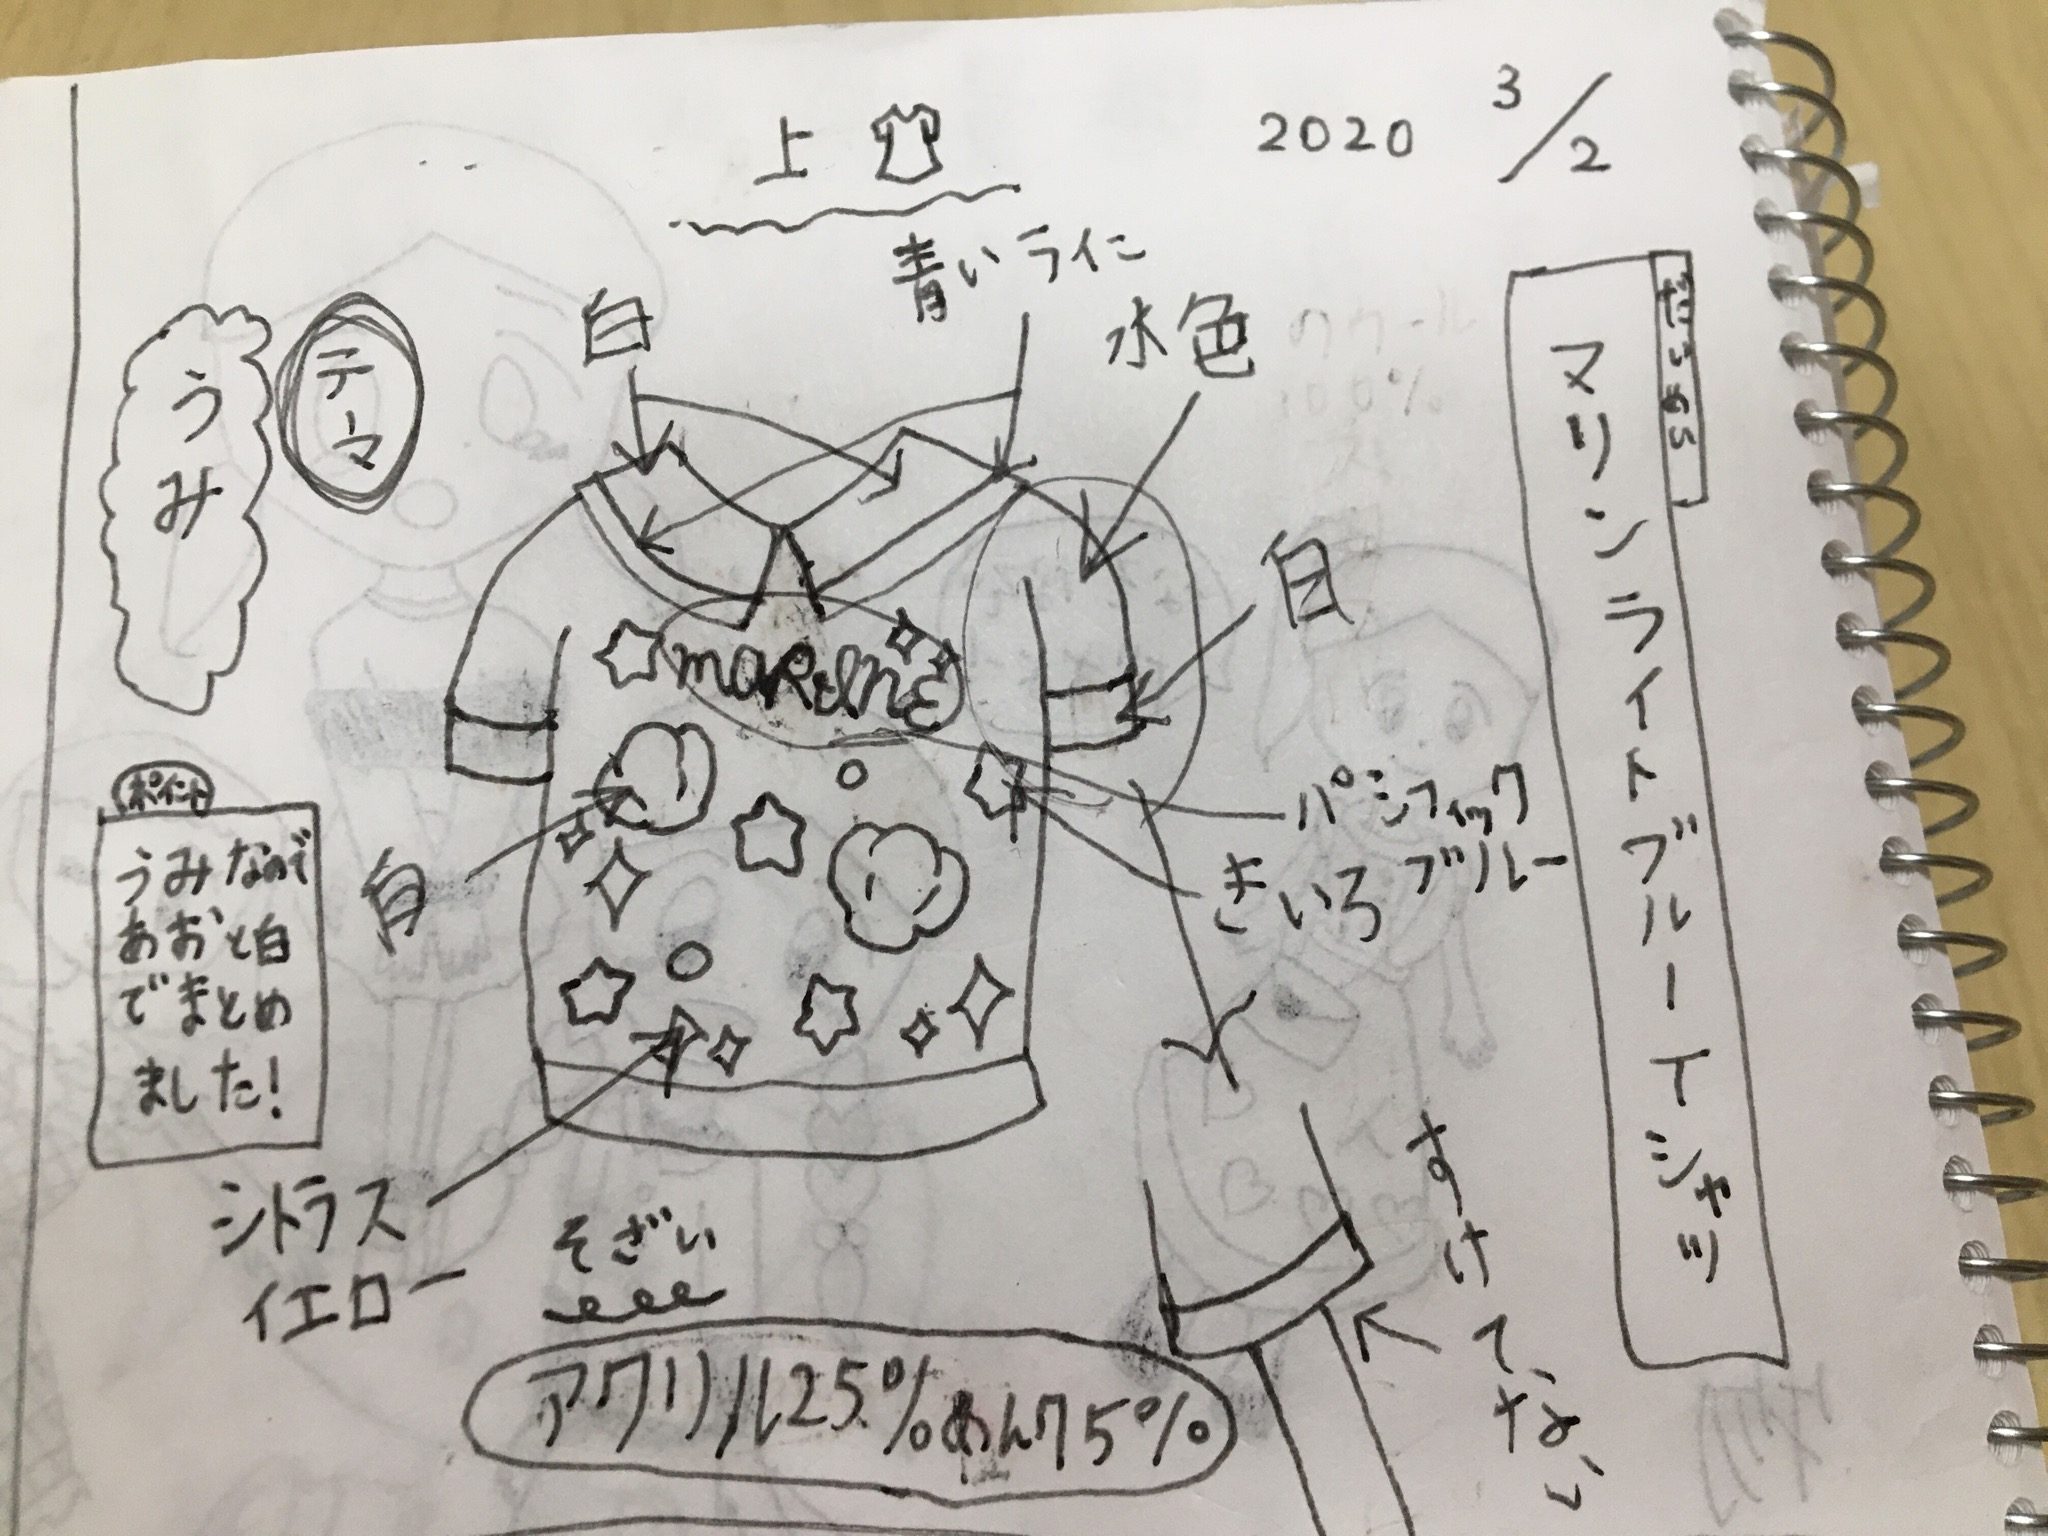 上
2020 3/2
青いライン
白
水色
白
だいめい
マリンライトブルーTシャツ
テーマ
うみ
MARINE
パシフィック
ブルー
きいろ
ポイント
うみなので
あおと白
でまとめ
ました!
白
シトラス
イエロー
そざい
アクリル25%めん75%
すけてない